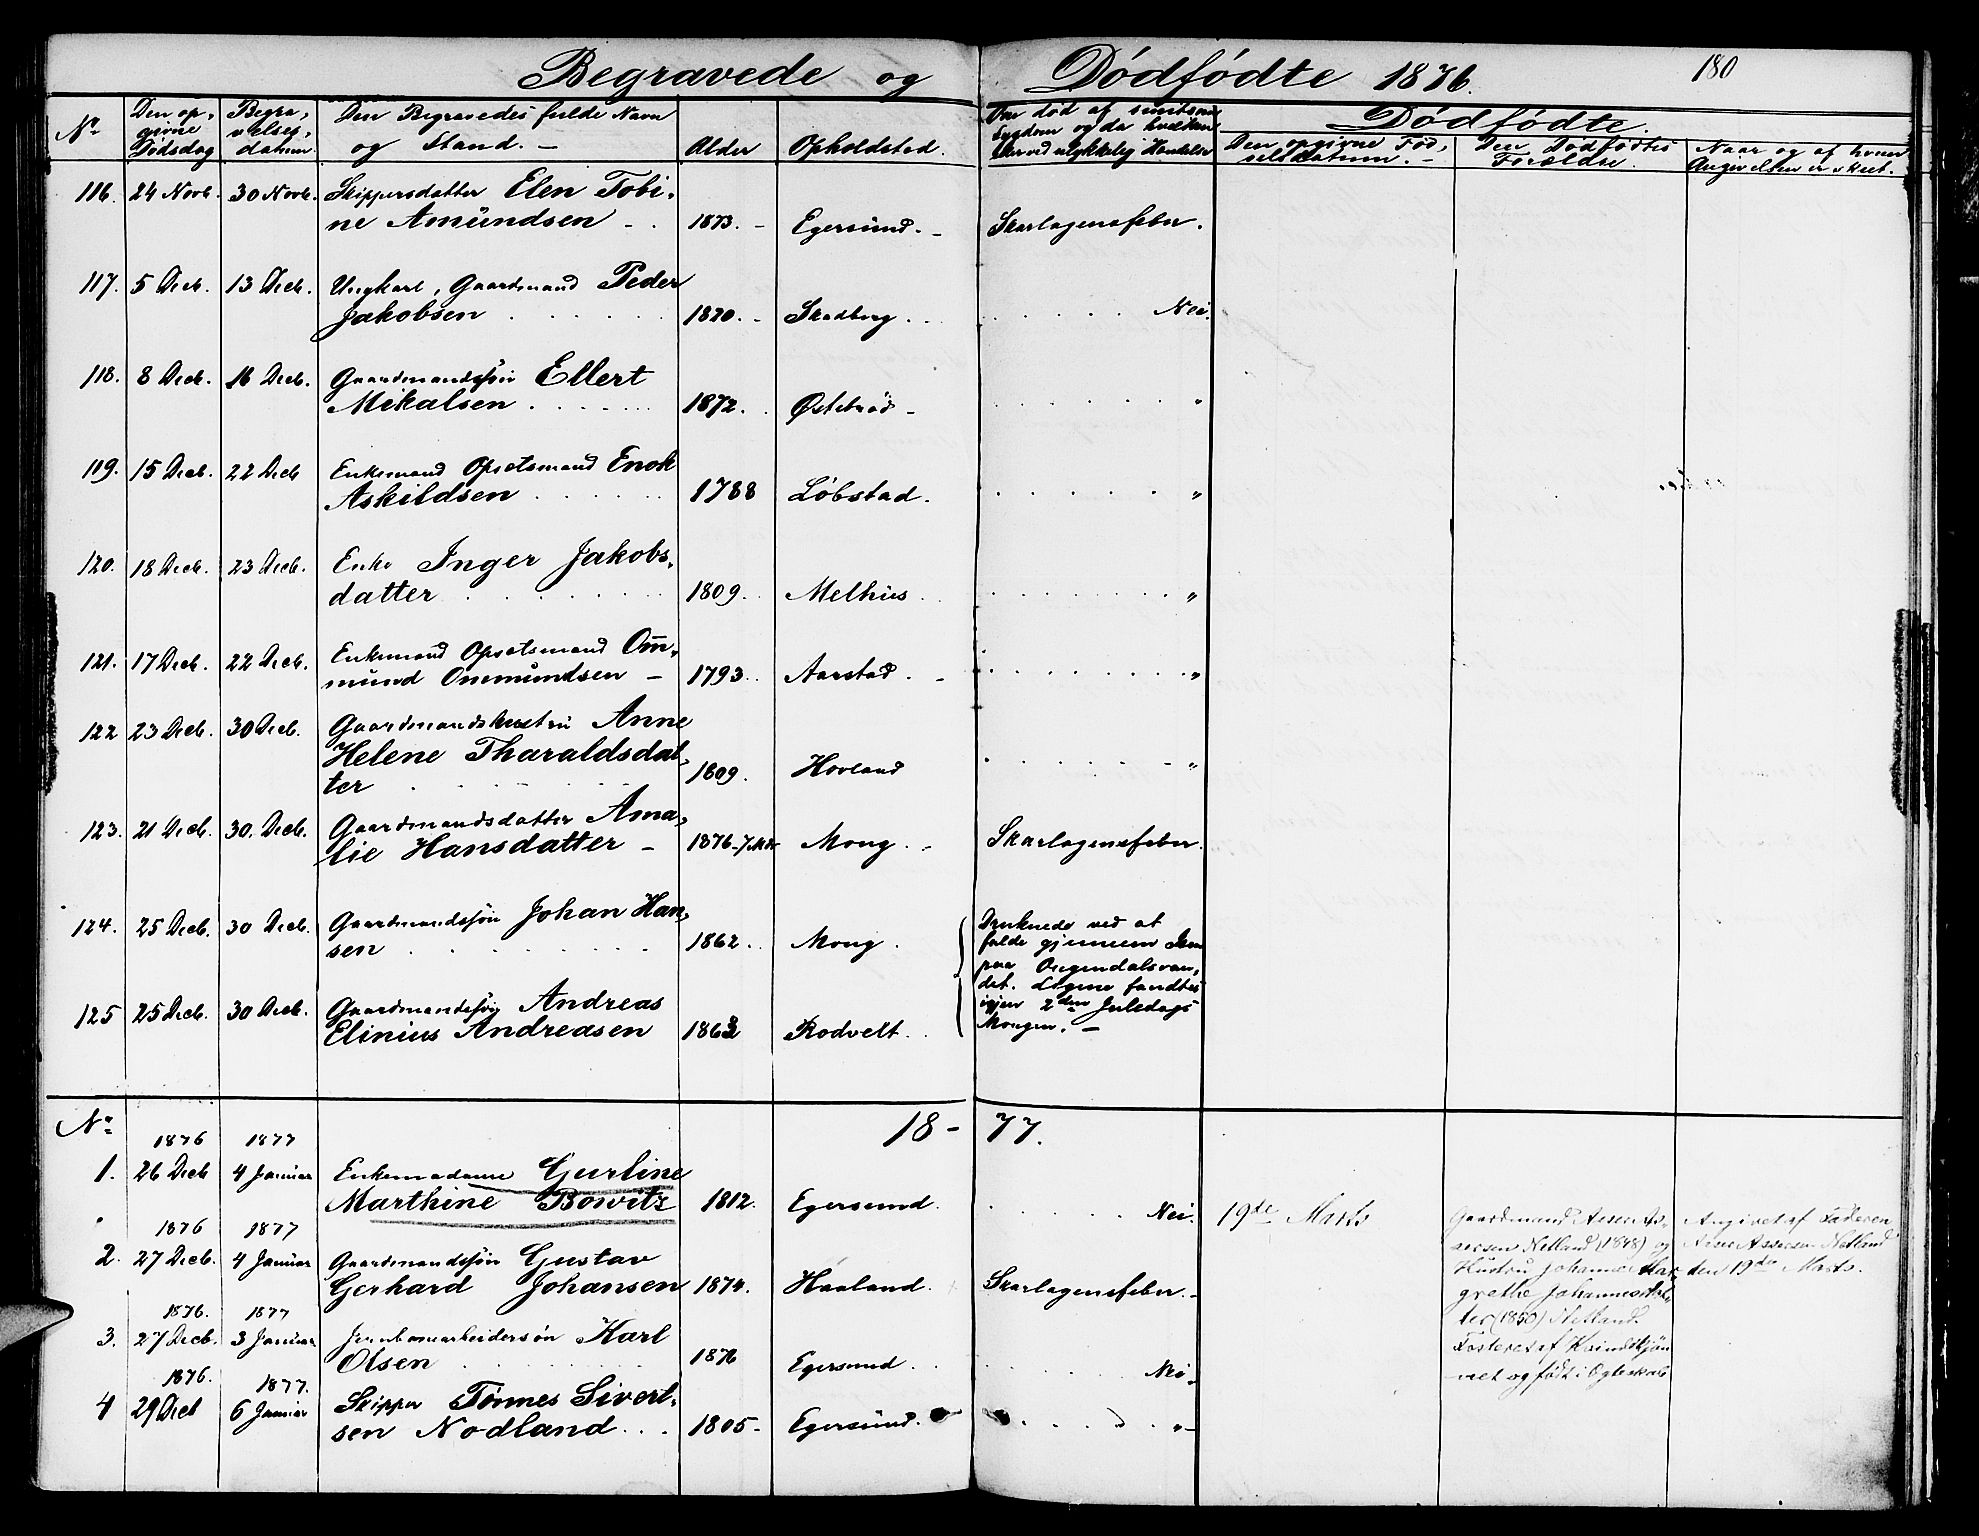 Begravede og Dødfødte 1876.
180
No
Den op-
givne
Dødsdag
Begra-
velses-
datum.
Den Begravedes fulde Navn
og Stand. -
Alder
Opholdsted.
Om død af smitsom
Sygdom og da hvilken
eller ved ulykkelig Hændelse
Dødfødte.
Den opgivne Fød-
selsdatum. -
Den Dødfødtes
Forældre.
Naar og af hvem
Angivelsen er skeet.
116. 24 Novb. 30 Novb. Skippersdatter Elen Tobi-
ne Amundsen - . 1873. - Egersund. - Skarlagensfeber.
117. 5 Decb. 13 Decb. Ungkarl, Gaardmand Peder
Jakobsen 1820. - Skadberg. Nei.
118. 8 Decb. 16 Decb. Gaardmandssøn Ellert
Mikalsen 1872. Østebrød - "
119. 15 Decb. 22 Decb Enkemand Opsotsmand Enok
Askildsen 1788 Løbstad. "
120. 18 Decb. 23 Decb. Enke Inger Jakobs-
datter 1809. Melhus "
121. 17 Decb. 22 Decb. Enkemand Opsotsmand Om-
mund Ommundsen - 1793. Aarstad. - "
122 23 Decb. 30 Decb. Gaardmandshustru Anne
Helene Tharaldsdat-
ter 1809. Hovland "
123. 21 Decb. 30. Decb. Gaardmandsdatter Ama-
lie Hansdatter - 1876-7 Mdr Mong. - Skarlagensfeber.
124. 25 Decb. 30 Decb. Gaardmandssøn Johan Han-
sen 1862. Mong.
Druknede ved at
falde gjennem Isen
paa Oregendalsvan-
det. Ligene fandtes
igjen 2den Juledags
Morgen. -
125 25 Decb. 30 Decb. Gaardmandssøn Andreas
Elinius Andreasen 1863 Rodvelt.
No 18 - 77.
1876 1877
1. 26 Decb 4 Januar Enkemadame Gurline
Marthine Bowitz 1812. Egersund. Nei.
1876 1877
2. 27 Decb. 4 Januar Gaardmandssøn Gustav
Gerhard Johansen 1874. Haaland. Skarlagensfeber. -
1876. 1877
3. 27 Decb. 3 Januar Jernbanearbeidersøn Karl
Olsen 1876 Egersund. Nei.
1876. 1877.
4 29 Decb 6 Januar Skipper Tønnes Sivert-
sen Nodland 1805 - Egersund. " -
19de Marts
Gaardmand Asser As-
sersen Netland (1848) og
Hustru Johanne Mar-
grethe Johannesdat-
ter (1850) Netland.
Fosteret af Kvindekjøn-
net og født i Ægteskab
Angivet af Faderen
Asser Assersen Netland
den 19de Marts.